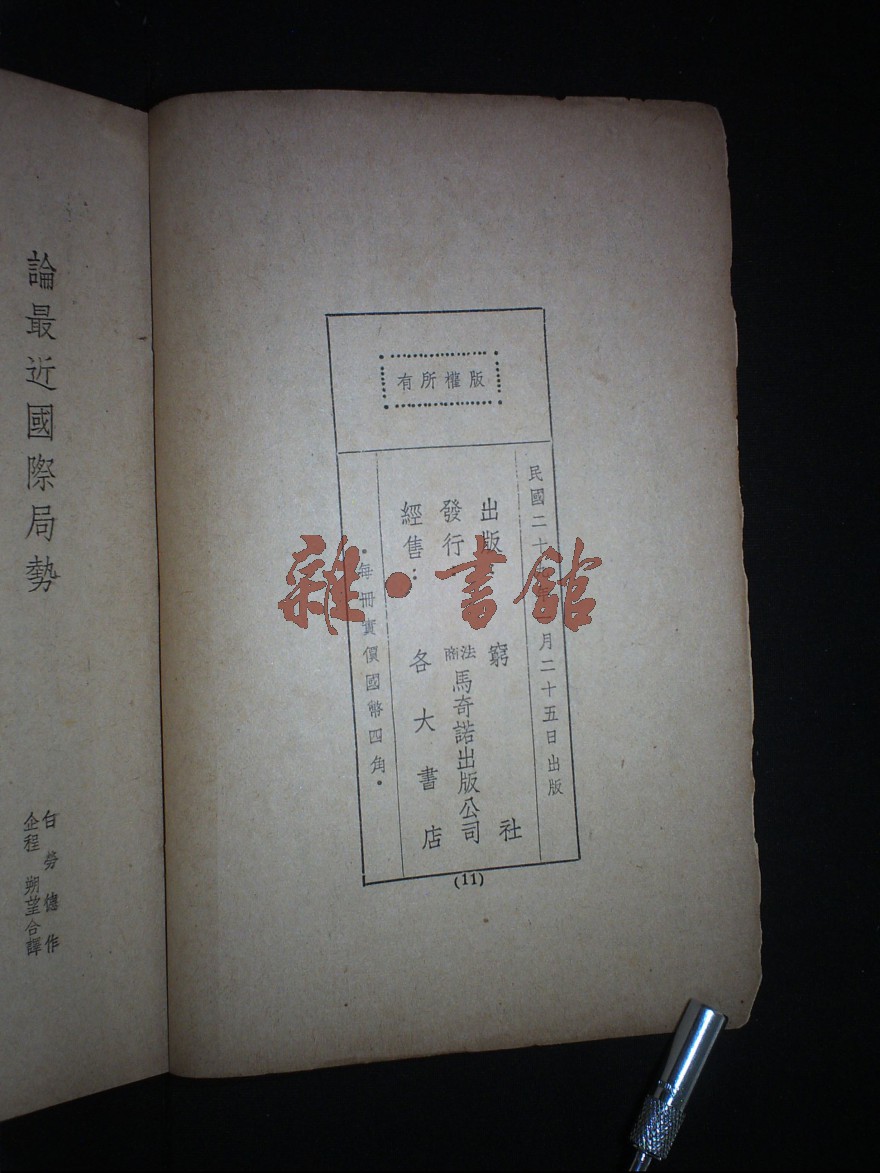 版權所有
民國二十月二十五日出版
出版窮社
發行法商馬奇諾出版公司
經售：各大書店
•每冊實價國幣四角•
(11)
論最近國際局勢
白勞德作
企程 朔望合譯
雜•書館